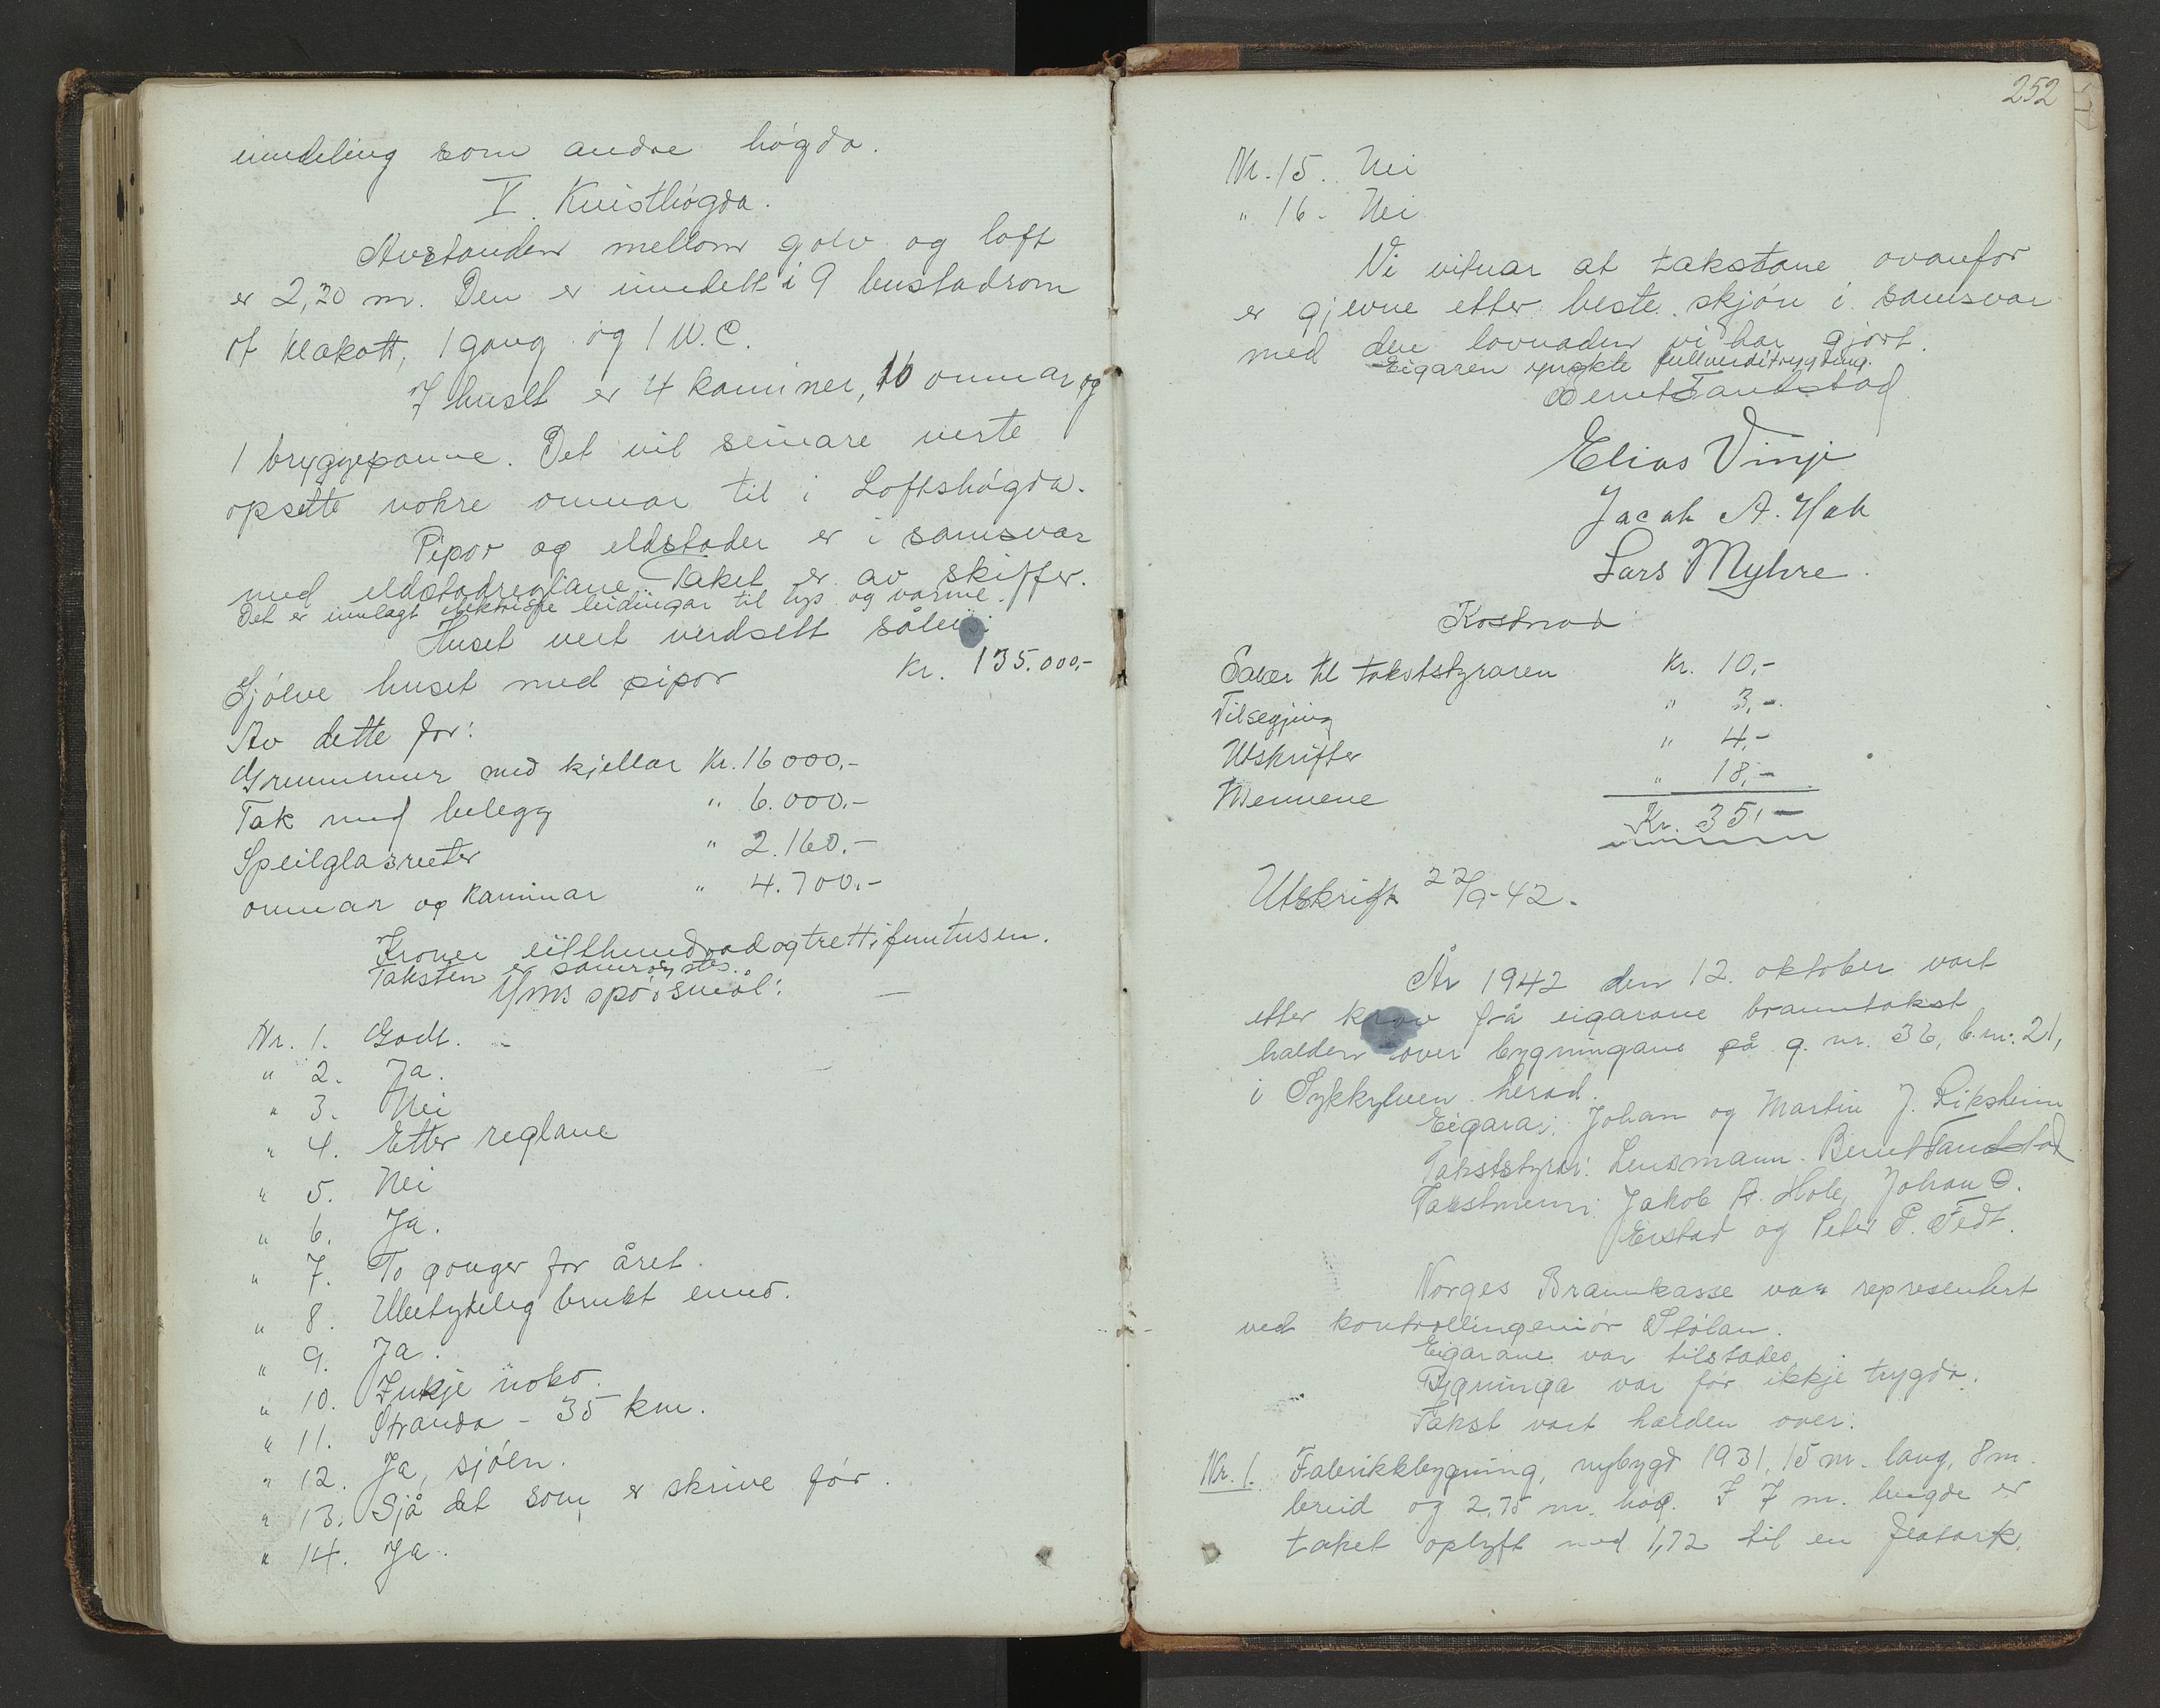 inndeling som andre høgda.
V. Kvisthøgda.
Avstanden mellom golv og loft
er 2,20 m. Den er inndelt i 9 bustadrom
1 gang og 1 W.C.
I huset er 4 kaminer, 10 omnar og
1 bryggepanne. Det vil seinare verte
opsette nokre omnar til i Loftshøgda.
Pipor og eldstader er i samsvar
med eldstadreglane. Taket er av skiffer.
Det er innlagt elektriske leidingar til lys og varme.
Huset vert verdsett såleis:
Sjølve huset med pipor Kr. 135.000,-
Av dette for:
Grunnmur med kjellar Kr. 16 000,-
Tak med belegg " 6.000.-
Speilglasruter " 2.160.-
omnar og kaminar " 4.700.-
Kroner eitthundradogtrettifemtusen.
Taksten er samrøystes.
Yms spørsmål:
Nr. 1. Godt.
" 2. Ja.
" 3. Nei
" 4. Etter reglane
" 5. Nei
" 6. Ja.
" 7. To gonger for året.
" 8. Ubetydeleg brukt emne.
" 9. Ja.
" 10. Inkje noko.
" 11. Stranda - 35 km.
" 12. Ja, sjøen.
" 13. Sjå det som er skrive før.
" 14. Ja.
252
Nr. 15. Nei
" 16. Nei
Vi vitnar at takstane ovanfor
er gjevne etter beste skjøn i samsvar
med den lovnaden vi har gjort.
Eigaren ynskte fullverditrygding.
Bernt Tandstad
Elias Vinje
Jacob A. Hole
Lars Myhre.
Kostnad
Salær til takststyraren Kr. 10,-
Tilsegjing " 3,-
Utskrifter " 4,-
Mennene " 18,-
Kr. 35,-
Utskrift 22/9-42.
År 1942 den 12. oktober vart
etter krav frå eigarane branntakst
halden over bygningane på g. nr. 36, b.nr. 21,
i Sykkylven herad.
Eigarar: Johan og Martin J. Riksheim
Takststyrar: Lensmann Bernt Tandstad
Takstmenn: Jakob A. Hole, Johan O.
Erstad og Peter P. Fedt.
Norges Brannkasse var representert
ved kontrollingeniør Stølan.
Eigarane var tilstades
Bygninga var før ikkje trygda.
Takst vart halden over:
Nr. 1. Fabrikkbygning, nybygd 1931, 15 m. lang, 8 m.
breid og 2,75 m. høg. I 7 m. lengde er
taket oplyft med 1,72 til en flatark.